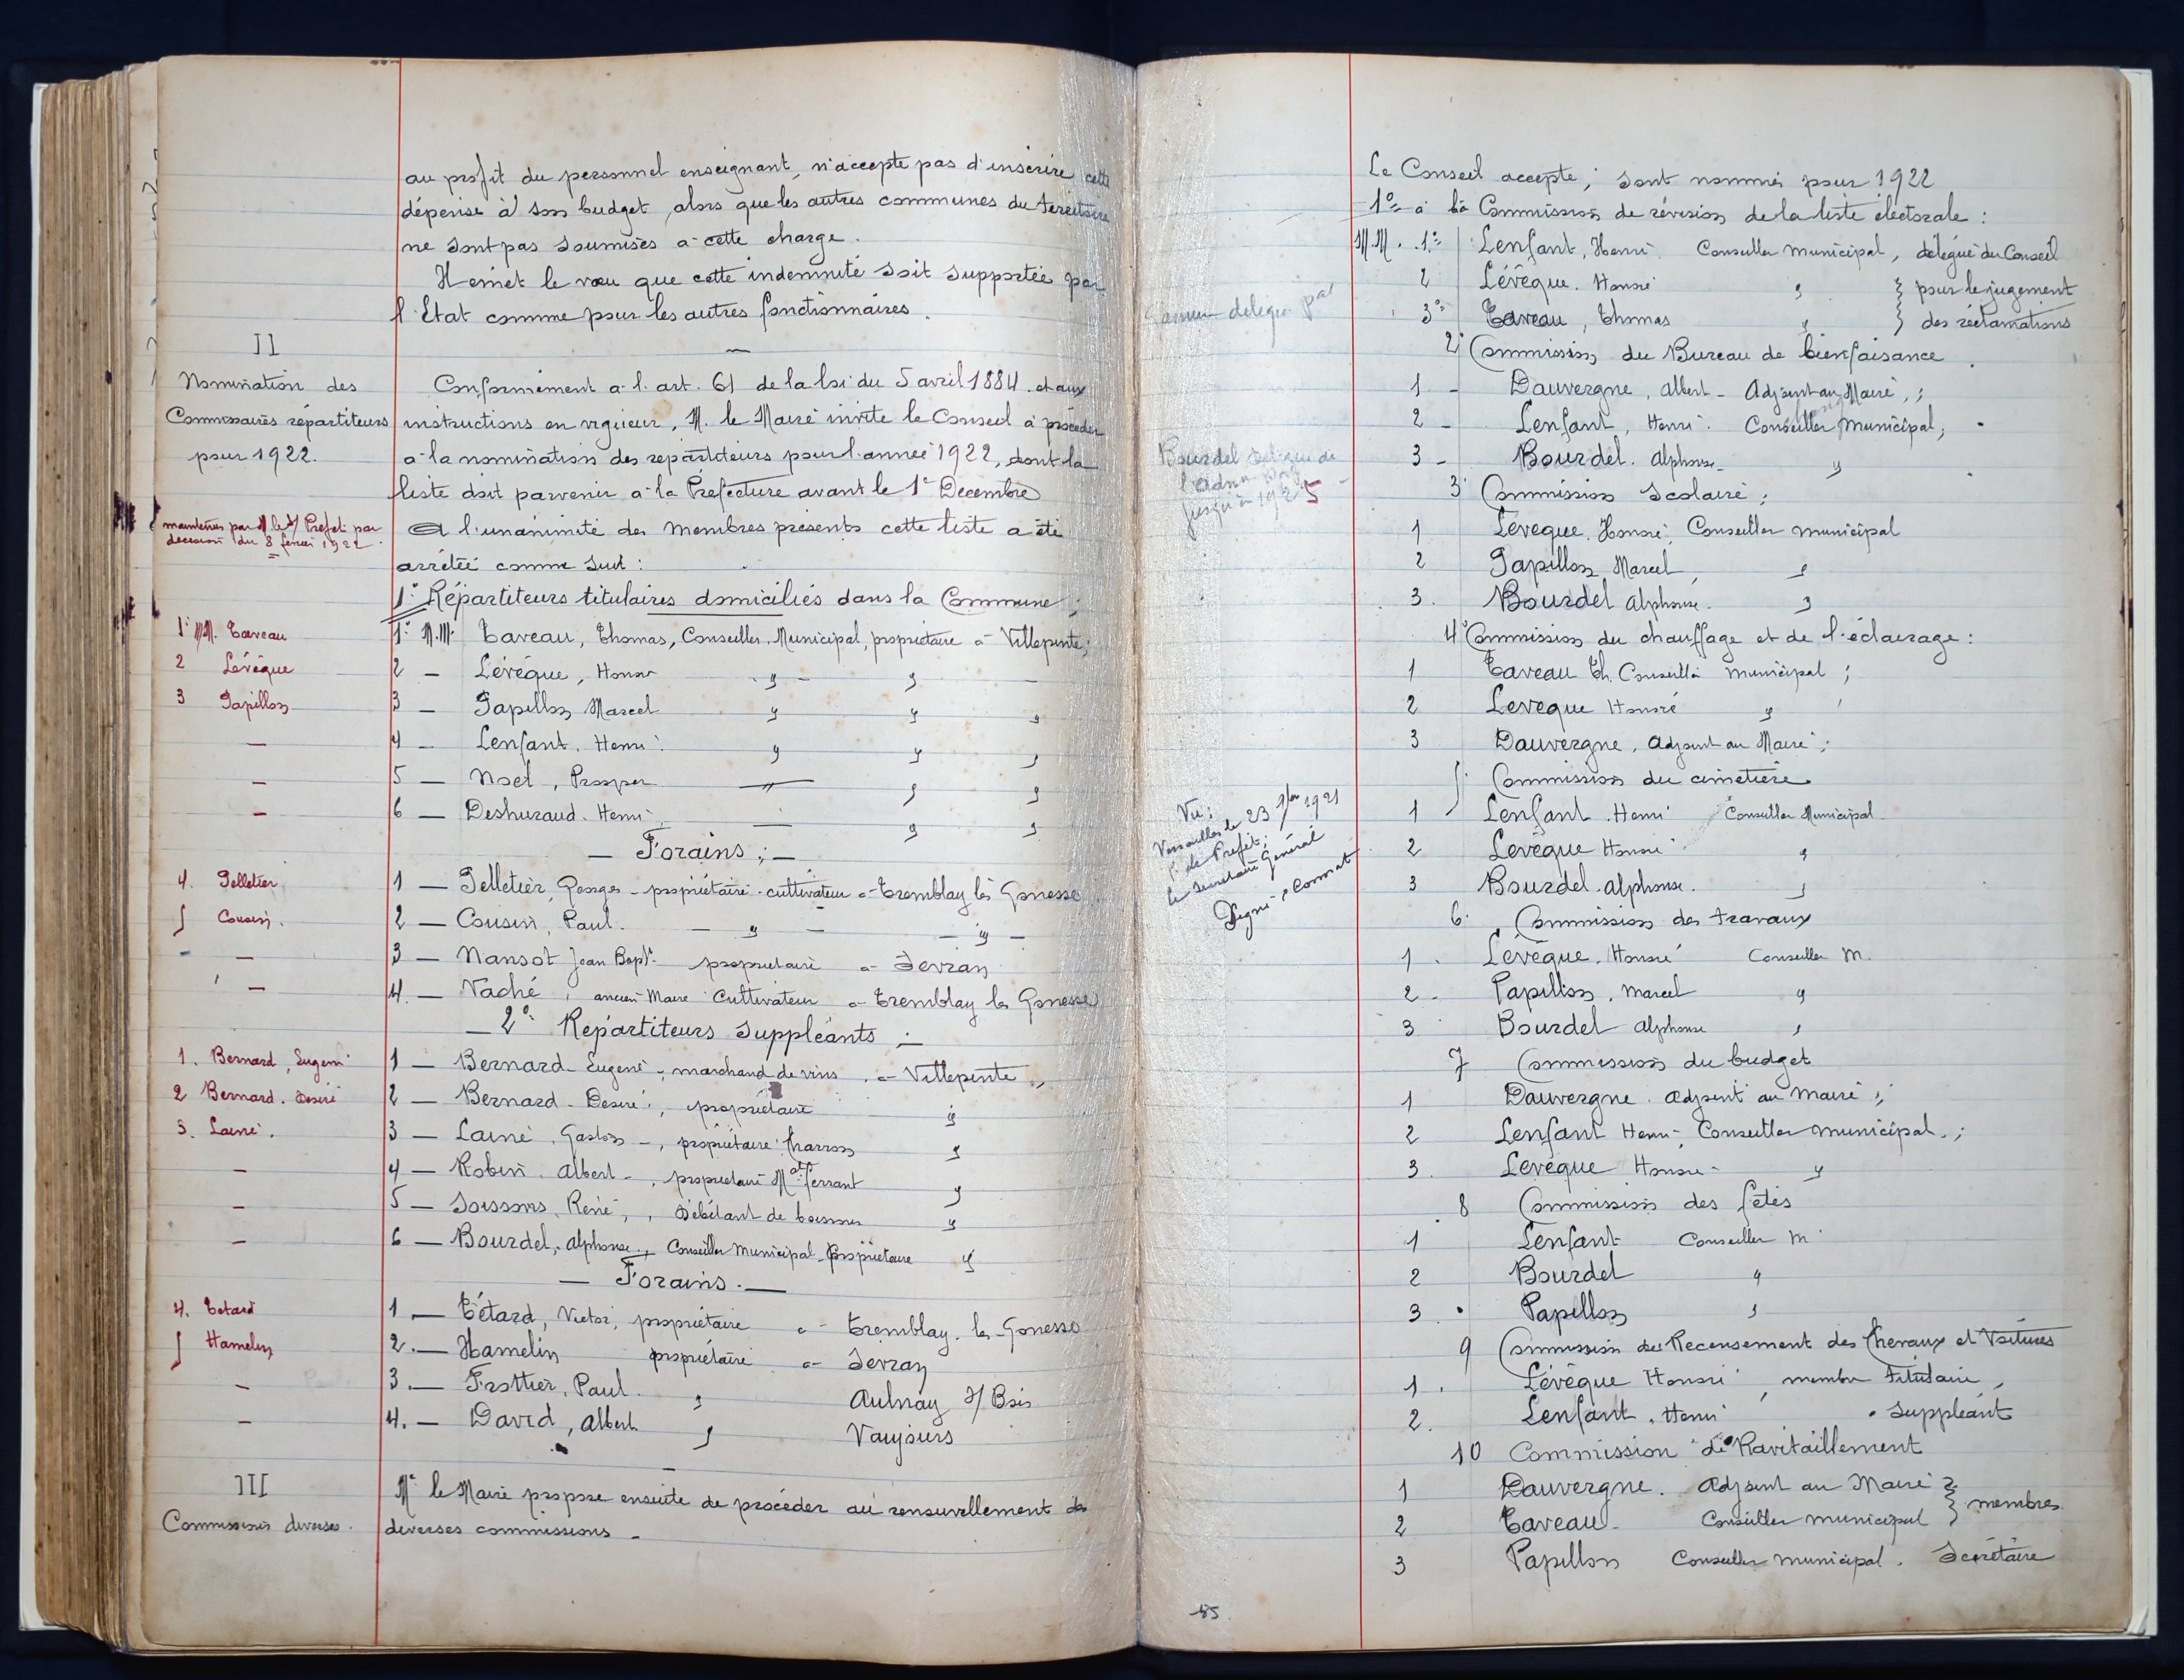 au profit du personnel enseignant, n'accepte pas d'inscrire cette
dépense à son budget, alors que les autres communes du territoire
ne sont pas soumises à cette charge.
Il émet le vœu que cette indemnité soit supportée par
l'Etat comme pour les autres fonctionnaires.
II
Nomination des
Commissaires répartiteurs
pour 1922.
Conformément à l'art. 61 de la loi du 5 avril 1884 et aux
instructions en vigueur, M. le Maire invite le Conseil à procéder
à la nomination des répartiteurs pour l'année 1922, dont la
liste doit parvenir à la Préfecture avant le 1er Décembre
maintenus par M le S/ Préfet par
décision du 8 février 1922.
A l'unanimité des membres présents cette liste a été
arrêtée comme suit :
1° Répartiteurs titulaires domiciliés dans la Commune ;
1° MM. Taveau
1° M.M. Taveau, Thomas, Conseiller Municipal, propriétaire à Villepinte ;
2 Lévêque
2 — Lévêque, Honoré " "
3 Papillon
3 — Papillon Marcel " " "
— 4 — Lenfant, Henri " " "
— 5 — Noel, Prosper — " "
— 6 — Deshuraud. Henri — " "
— Forains ; —
4. Pelletier
1 — Pelletier, Georges - propriétaire - cultivateur à Tremblay lès Gonesse
5 Cousin.
2 — Cousin, Paul. — " — — " —
— 3 — Nansot Jean Bapte propriétaire à Sevran
— 4. — Vaché, ancien Maire Cultivateur à Tremblay les Gonesse
— 2° Répartiteurs Suppléants ; —
1. Bernard, Eugène
1 — Bernard Eugène, marchand de vins, à Villepinte,
2 Bernard. Désiré
2 — Bernard - Désiré, propriétaire "
3. Lainé.
3 — Lainé, Gaston —, propriétaire Charron "
— 4 — Robin. Albert —, propriétaire Mal ferrant "
— 5 — Soissons, René, débitant de boissons "
— 6 — Bourdel, Alphonse, Conseiller Municipal - Propriétaire "
— Forains. —
4. Tétard
1. — Tétard, Victor, propriétaire à Tremblay. les Gonesse
5 Hamelin
2. — Hamelin propriétaire à Sevran
— 3. — Frottier, Paul. " Aulnay s/ Bois
— 4. — David, Albert " Vaujours
III
Commissions diverses.
Mr le Maire propose ensuite de procéder au renouvellement des
diverses commissions —
Le Conseil accepte, sont nommés pour 1922
1° à la Commission de révision de la liste électorale :
M.M. 1° Lenfant, Henri Conseiller Municipal, délégué du Conseil
2 Lévêque. Honoré " } pour le jugement
3° Taveau, Thomas " } des réclamations
délégué par
2° Commission du Bureau de bienfaisance
1 - Dauvergne, Albert - Adjoint au Maire, ;
2 - Lenfant, Henri. Conseiller Municipal ;
3 - Bourdel. Alphonse "
Bourdel délégué de
jusqu'en 1925
3° Commission Scolaire ;
1 Lévêque. Honoré, Conseiller municipal
2 Papillon, Marcel, "
3. Bourdel Alphonse. "
4° Commission du chauffage et de l'éclairage :
1 Taveau Th. Conseiller municipal ;
2 Leveque Honoré "
3 Dauvergne, Adjoint au Maire ;
5. Commission du cimetière
1 Lenfant. Henri Conseiller Municipal
2 Leveque Honoré "
3 Bourdel. Alphonse. "
Vu :
Versailles le 23 9bre 1921
P. le Préfet :
le Secrétaire Général
Signé : Connat
6. Commission des travaux
1. Lévêque. Honoré Conseiller M.
2 - Papillon, Marcel "
3 Bourdel Alphonse "
7 Commission du budget
1 Dauvergne. Adjoint au Maire ;
2 Lenfant Henri, Conseiller municipal. ;
3. Leveque Honoré "
8 Commission des fêtes
1 Lenfant Conseiller M.
2 Bourdel "
3. Papillon "
9 Commission du Recensement des Chevaux et Voitures
1. Lévêque Honoré, membre titulaire,
2. Lenfant. Henri " Suppléant
10 Commission de Ravitaillement
1 Dauvergne. Adjoint au Maire }
2 Taveau. Conseiller municipal } membres
3 Papillon Conseiller municipal. Secrétaire
85